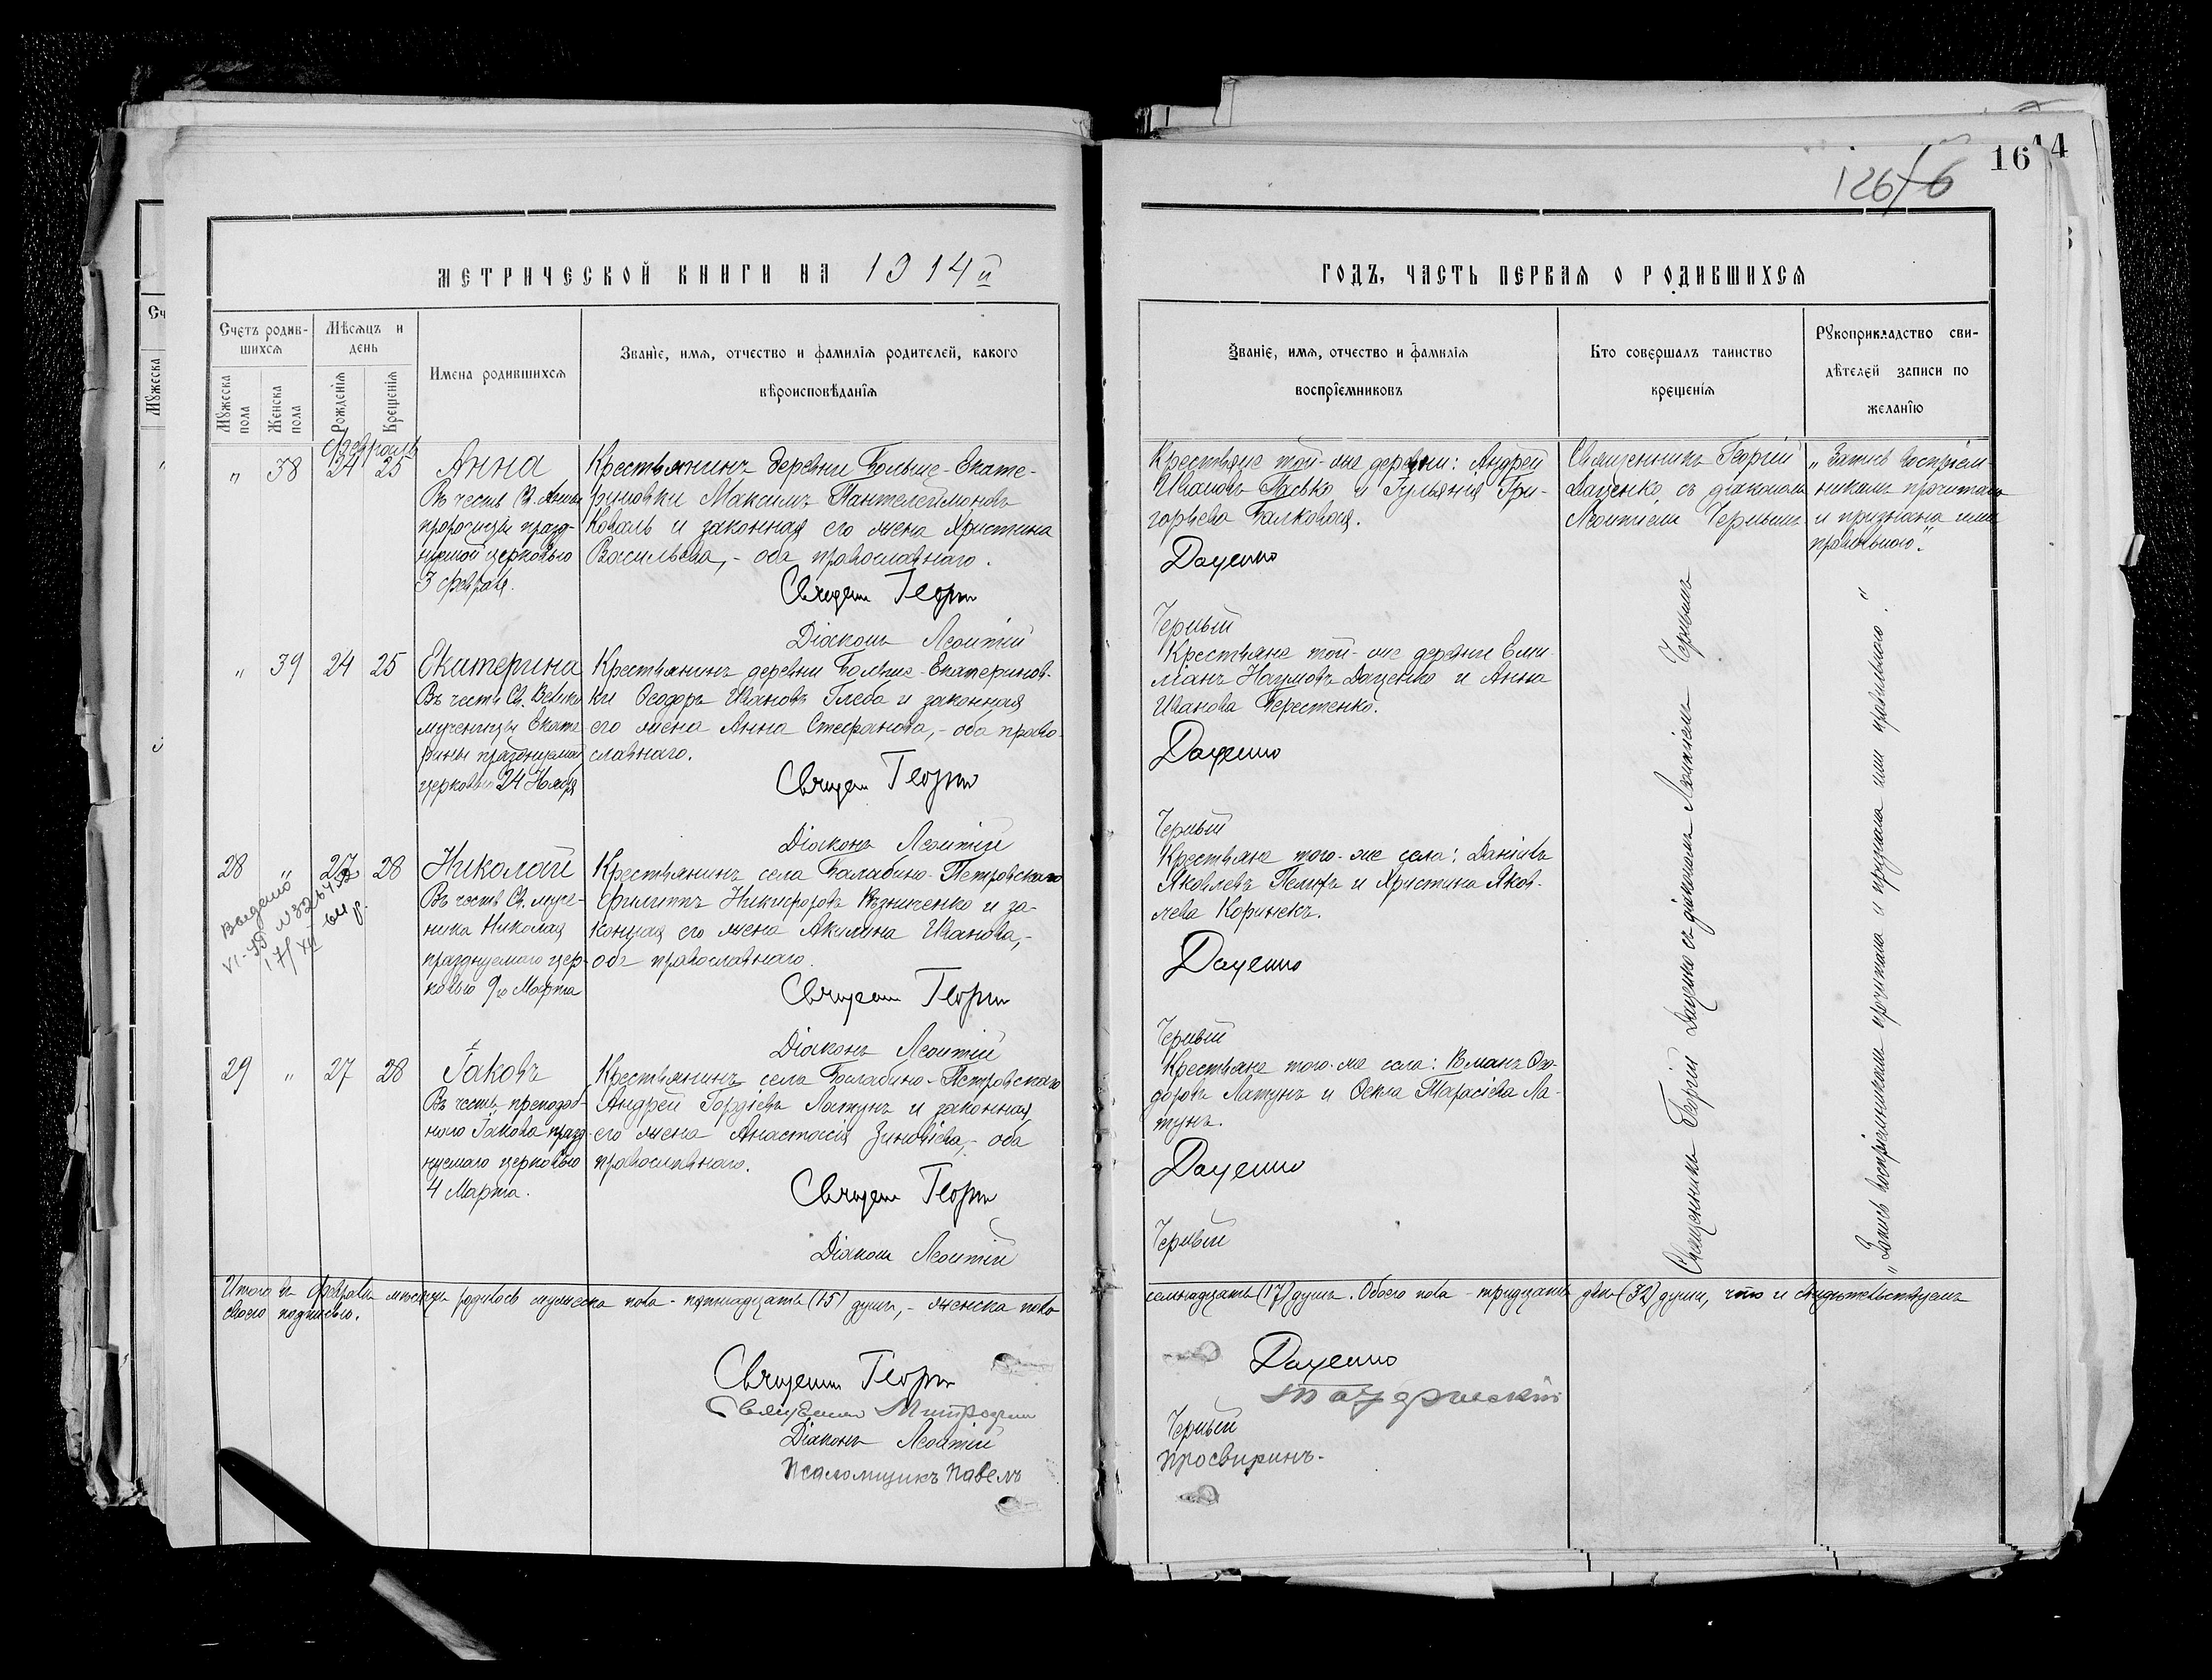 16
14
126
16
МЕТРИЧЕСКОЙ КНИГИ НА 1914й
ГОДЪ, ЧАСТЬ ПЕРВАЯ О РОДИВШИХСЯ
Счетъ родив-
шихся
Мужеска пола
Женска пола
Мѣсяцъ и
день
Рожденія
Крещенія
Имена родившихся
Званіе, имя, отчество и фамилія родителей, какого
вѣроисповѣданія
Званіе, имя, отчество и фамилія
воспріемниковъ
Кто совершалъ таинство
крещенія
Рукоприкладство сви-
дѣтелей записи по
желанію
Февраль
„ 38 24 25
Анна
Въ честь Св. Анны
пророчицы празд-
нуемой церковью
3 Февраля.
Крестьянинъ деревни Больше-Екате-
риновки Максимъ Пантелеймоновъ
Коваль и законная его жена Христина
Васильева, - оба православнаго.
Священ Георгій
Діаконъ Леонтій
Крестьяне той-же деревни: Андрей
Ивановъ Пасько и Гульянія Гри-
горьева Балковая.
Даценко
Черный
Священникъ Георгій
Даценко съ діакономъ
Леонтіемъ Чернымъ
„Запись воспріем-
никамъ прочитана
и признана ими
правильною."
„ 39 24 25
Екатерина
Въ честь Св. Велико
мученицы Екате
рины празднуемой
церковью 24 Ноября
Крестьянинъ деревни Больше-Екатеринов-
ки Ѳеодоръ Ивановъ Глеба и законная
его жена Анна Стефанова, - оба право-
славнаго.
Священ Георгій
Діаконъ Леонтій
Крестьяне той-же деревни Еми-
ліанъ Наумовъ Даценко и Анна
Иванова Берестенко.
Даценко
Черный
28 „ 27 28
Выдано
VI-ЯВ
17/XII
Николай
Въ честь Св. муче-
ника Николая
празднуемаго цер-
ковью 9го Марта
Крестьянинъ села Балабино-Петровскаго
Филиппъ Никифоровъ Рѣзниченко и за-
конная его жена Акилина Иванова, -
оба православнаго.
Священ Георгій
Діаконъ Леонтій
Крестьяне того-же села: Даніилъ
Яковлевъ Пелихъ и Христина Яков-
лева Коринекъ.
Даценко
Черный
29 „ 27 28
Іаковъ
Въ честь преподоб-
ного Іакова празд-
нуемаго церковью
4 Марта.
Крестьянинъ села Балабино-Петровскаго
Андрей Гордіевъ Латунъ и законная
его жена Анастасія Зиновіева, - оба
православнаго.
Священ Георгій
Діаконъ Леонтій
Крестьяне того-же села: Романъ Ѳео-
доровъ Латунъ и Ѳекла Тарасіева Ла-
тунъ.
Даценко
Черный
Священникъ Георгій Даценко съ діакономъ Леонтіемъ Чернымъ
„Запись воспріемникамъ прочитана и признана ими правильною."
Итого въ Февралѣ мѣсяцѣ родилось мужеска пола - пятнадцать (15) душъ, - женска пола
семнадцать (17) душъ. Обоего пола - тридцать двѣ (32) души, что и свидѣтельствуемъ
своею подписью.
Священ Георгій
Даценко
Священ Митрофанъ
Діаконъ Леонтій
Черный
Псаломщикъ Павелъ
Просвиринъ.